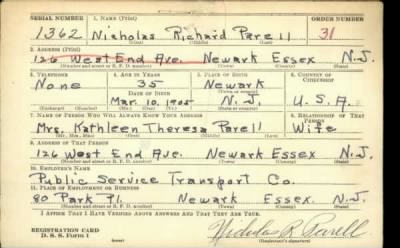 SERIAL NUMBER 1. NAME (Print) ORDER NUMBER
1362 Nicholas Richard Parell 31
2. ADDRESS (Print)
126 West End Ave. Newark Essex N.J.
(Number and street or R. F. D. number) (Town) (County) (State)
3. TELEPHONE 4. AGE IN YEARS 5. PLACE OF BIRTH 6. COUNTRY OF CITIZENSHIP
None 35 Newark
DATE OF BIRTH (Town or county)
Mar. 10, 1905 N.J. U.S.A.
(Exchange) (Number) (Mo.) (Day) (Yr.) (State or country)
7. NAME OF PERSON WHO WILL ALWAYS KNOW YOUR ADDRESS 8. RELATIONSHIP OF THAT PERSON
Mrs. Kathleen Theresa Parell Wife
(Mr., Mrs., Miss) (First) (Middle) (Last)
9. ADDRESS OF THAT PERSON
126 West End Ave. Newark Essex N.J.
(Number and street or R. F. D. number) (Town) (County) (State)
10. EMPLOYER'S NAME
Public Service Transport Co.
11. PLACE OF EMPLOYMENT OR BUSINESS
80 Park Pl. Newark Essex. N.J.
(Number and street or R. F. D. number) (Town) (County) (State)
I AFFIRM THAT I HAVE VERIFIED ABOVE ANSWERS AND THAT THEY ARE TRUE.
REGISTRATION CARD
D. S. S. FORM 1 Nicholas R. Parell
(Registrant's signature)